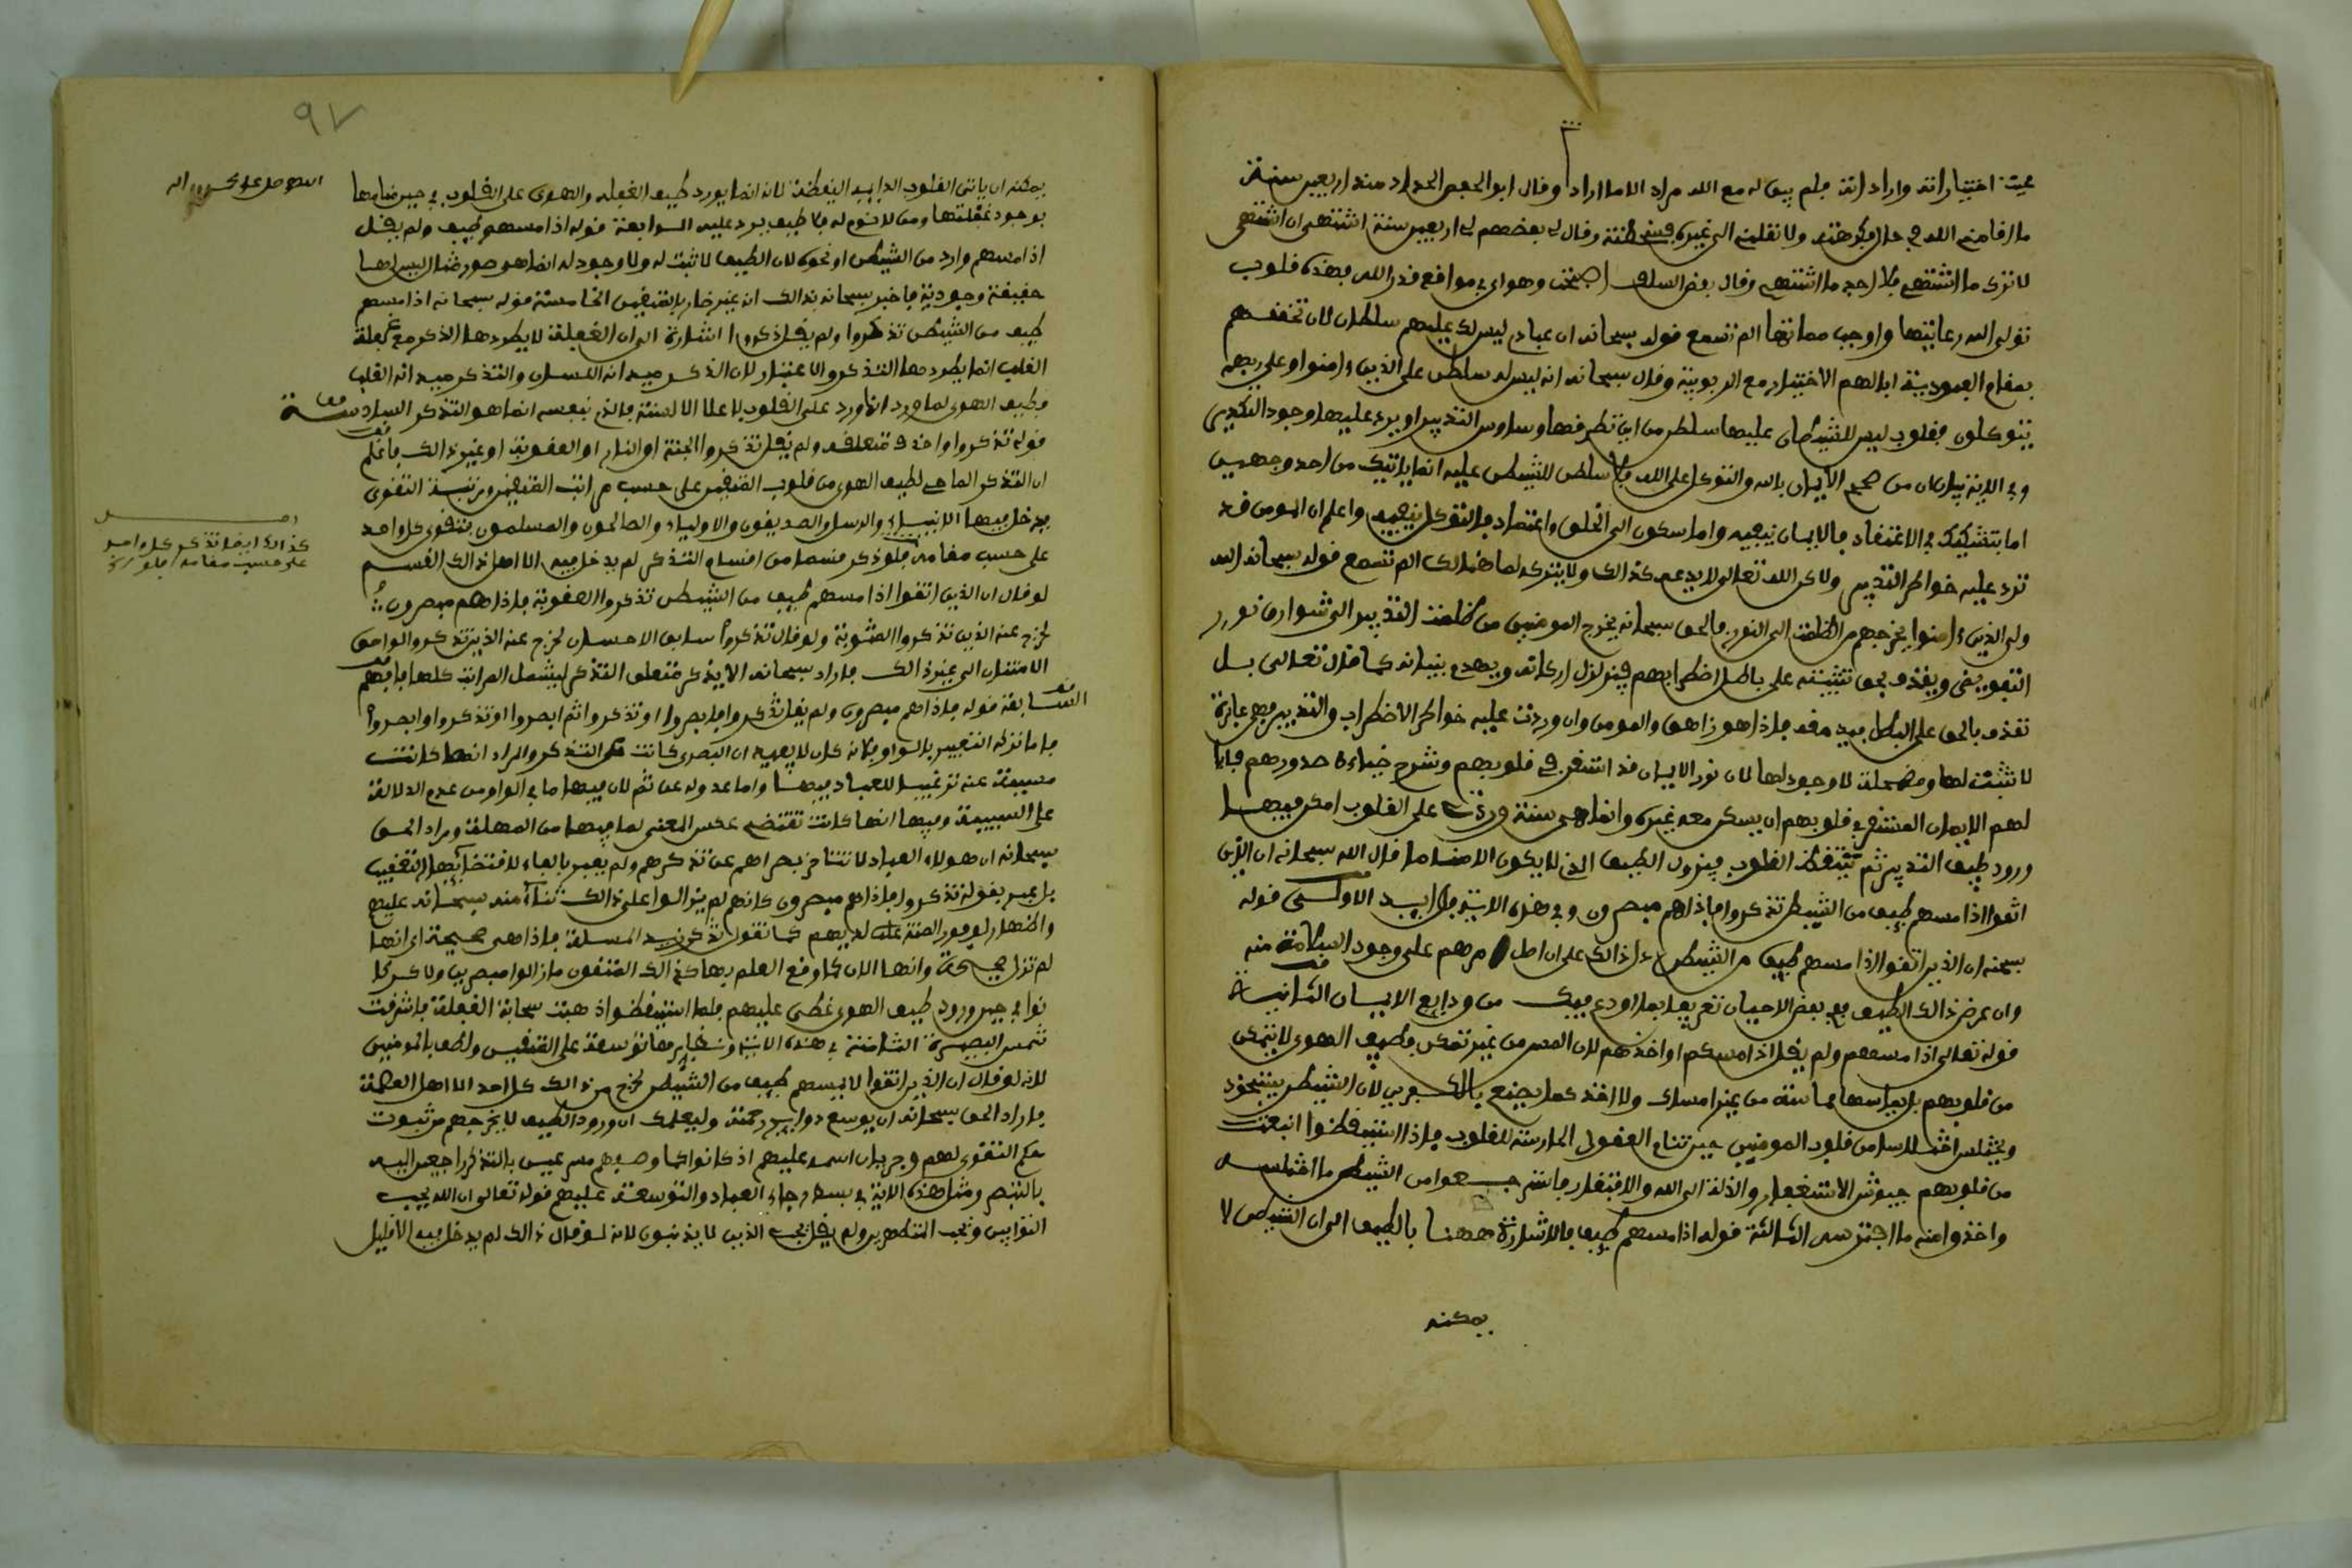 عيت اختياراته واراداته فلم يبق له مع الله مراد الا ما اراد وقال ابو الحفص الحداد منذ اربعين سنة
ما اقامني الله في حال فكرهته ولا نقلني الى غيره فسخطته وقال لي بعضهم لي اربعين سنة اشتهى ان اشتهى
لاترك ما اشتهى فلا اجد ما اشتهى وقال بعض السلف اصبحت وهواى في مواقع قدر الله فهذه قلوب
تولى الله رعايتها واوجب صيانتها الم تسمع قوله سبحانه ان عبادى ليس لك عليهم سلطان لان تحققهم
بمقام العبودية ابالهم الاختيار مع الربوبية وقال سبحانه انه ليس له سلطن على الذين ءامنوا وعلى ربهم
يتوكلون فقلوب ليس للشيطان عليها سلطن من اين تطرقها وساوس التدبير او يرد عليها وجود التكدير
وفي الاية بيان ان من صحح الايمان بالله والتوكل على الله فلا سلطن للشيطن عليه انما ياتيك من احد وجهين
اما بتشكيك في الاعتقاد فالايمان ينفيه واما سكون الى الخلق واعتماد فالتوكل ينفيه واعلم ان المومن قد
ترد عليه خواطر التدبير ولاكن الله تعالى لا يدعه كذالك ولا يتركه لما هنالك الم تسمع قوله سبحانه الله
ولى الذين ءامنوا يخرجهم من الظلمت الى النور فالحق سبحانه يخرج المومنين من ظلمت التدبير الى شوارق نور
التفويض ويقذف بحق تثبيته على باطل اضطرابهم فيزلزل اركانه ويهدم بنيانه كما قال تعالى بل
نقذف بالحق على البطل فيدمغه فاذا هو زاهق والمومن وان وردت عليه خواطر الاضطراب والتدبير فهى عابرة
لا تثبت لها ومضمحلة لا وجود لها لان نور الايمان قد استقر في قلوبهم وشرح ضياءه صدورهم فابا
لهم الايمان المستقر في قلوبهم ان يسكن معه غيره وانما هى سنة وردت على القلوب امكن فيها
ورود طيف التدبير ثم تتيقظ القلوب فيزول الطيف الذى لا يكون الا مناما قال الله سبحانه ان الذين
اتقوا اذا مسهم طيف من الشيطن تذكروا فاذا هم مبصرون وفي هذه الاية فوايد الاولى قوله
سبحنه ان الذين اتقوا اذا مسهم طيف من الشيطن دل ذالك على ان اصل امرهم على وجود السلامة منه
وان عرض ذالك الطيف ففي بعض الاحيان تعريفا بما اودع فيك من ودايع الايمان الثانية
قوله تعالى اذا مسهم ولم يقل اذا امسكهم او اخذهم لان المس من غير تمكن فطيف الهوى لا يتمكن
من قلوبهم بل يماسها مماسة من غير امساك ولا اخذ كما يصنع بالكفرين لان الشيطن يستحوذ
ويختلس اختلاسا من قلوب المومنين حين تنام العقول الحارسة للقلوب فاذا استيقظوا انبعثت
من قلوبهم جيوش الاستغفار والذلة الى الله والافتقار فاسترجعوا من الشيطن ما اختلسه
واخذوا منه ما افترسه الثالثة قوله اذا مسهم طيف فالاشارة ههنا بالطيف الى ان الشيطن لا
يمكنه
٩٧
يمكنه ان ياتى القلوب الدايمة اليقظة لانه انما يورد طيف الغفلة والهوى على القلوب في حين منامها
بوجود غفلتها ومن لا نوم له فلا طيف يرد عليه الرابعة قوله اذا مسهم طيف ولم يقل
اذا مسهم وارد من الشيطن او نحوه لان الطيف لا ثبت له ولا وجود له انما هو صورة مثالية ليس لها
حقيقة وجودية فاخبر سبحانه بذالك انه غير ضار بالمتقين الخامسة قوله سبحانه اذا مسهم
طيف من الشيطن تذكروا ولم يقل ذكروا اشارة الى ان الغفلة لا يطردها الذكر مع غفلة
القلب انما يطردها التذكر والاعتبار لان الذكر ميدانه اللسان والتذكر ميدانه القلب
وطيف الهوى لما ورد انما ورد على القلوب لا على الالسنة فالذى ينفيه انما هو التذكر السادسة
قوله تذكروا واحذف متعلقه ولم يقل تذكروا الجنة او النار او العقوبة او غير ذالك فاعلم
ان التذكر الماحى لطيف الهوى من قلوب المتقين على حسب مراتب المتقين ورتبة التقوى
يدخل فيها الانبياء والرسل والصديقون والاولياء والصالحون والمسلمون فتقوى كل واحد
على حسب مقامه فلو ذكر قسما من اقسام التذكر لم يدخل فيه الا اهل ذالك القسم
كذالك ايضا تذكر كل واحد
على حسب مقامه فلو
لو قال ان الذين اتقوا اذا مسهم طيف من الشيطن تذكروا العقوبة فاذا هم مبصرون
لخرج عنه الذين تذكروا المثوبة ولو قال تذكروا سابق الاحسان لخرج عنه الذين تذكروا لواحق
الامتنان الى غير ذالك فاراد سبحانه الا يذكر متعلق التذكر ليشمل المراتب كلها فافهم
السابعة قوله فاذا هم مبصرون ولم يقل تذكروا فابصروا او تذكروا ثم ابصروا او تذكروا وابصروا
فاما ترك التعبير بالواو فلانه كان لا يفيد ان البصرى كانت عن التذكر والمراد انها كانت
مسببة عنه ترغيبا للعباد فيها واما عدوله عن ثم لان فيها ما في الواو من عدم الدلالة
على السببية وفيها انها كانت تقتضى عكس المعنى لما فيها من المهلة ومراد الحق
سبحانه ان هولاء العباد لا تتاخر بصراهم عن تذكرهم ولم يعبر بالفاء لاقتضايها التعقيب
بل عبر بقوله تذكروا فاذا هم مبصرون كانهم لم يزالوا على ذالك ثناء منه سبحانه عليهم
واظهارا لوفور المنة لديهم كما تقول تذكر زيد المسئلة فاذا هى صحيحة اى انها
لم تزل صحيحة وانما الان كما وقع العلم بها كذالك المتقون مازالوا مبصرين ولاكن كا
نوا في حين ورود طيف الهوى غطى عليهم فلما استيقظوا ذهبت سحابة الغفلة فاشرقت
شمس البصيرة الثامنة في هذه الاية ونظايرها توسعة على المتقين ولطف بالمومنين
لانه لو قال ان الذين اتقوا لا يمسهم طيف من الشيطن لخرج من ذالك كل احد الا اهل العصمة
فاراد الحق سبحانه ان يوسع دواير رحمته وليعلمك ان ورود الطيف لا يخرجهم من ثبوت
حكم التقوى لهم وجريان اسمه عليهم اذ كانوا كما وصفهم مسرعين بالتذكر راجعين اليه
بالتبصر ومثل هذه الاية في بسط رجاء العباد والتوسعة عليهم قوله تعالى ان الله يحب
التوابين ويحب المتطهرين ولم يقل يحب الذين لا يذنبون لانه لو قال ذالك لم يدخل فيه الا قليل